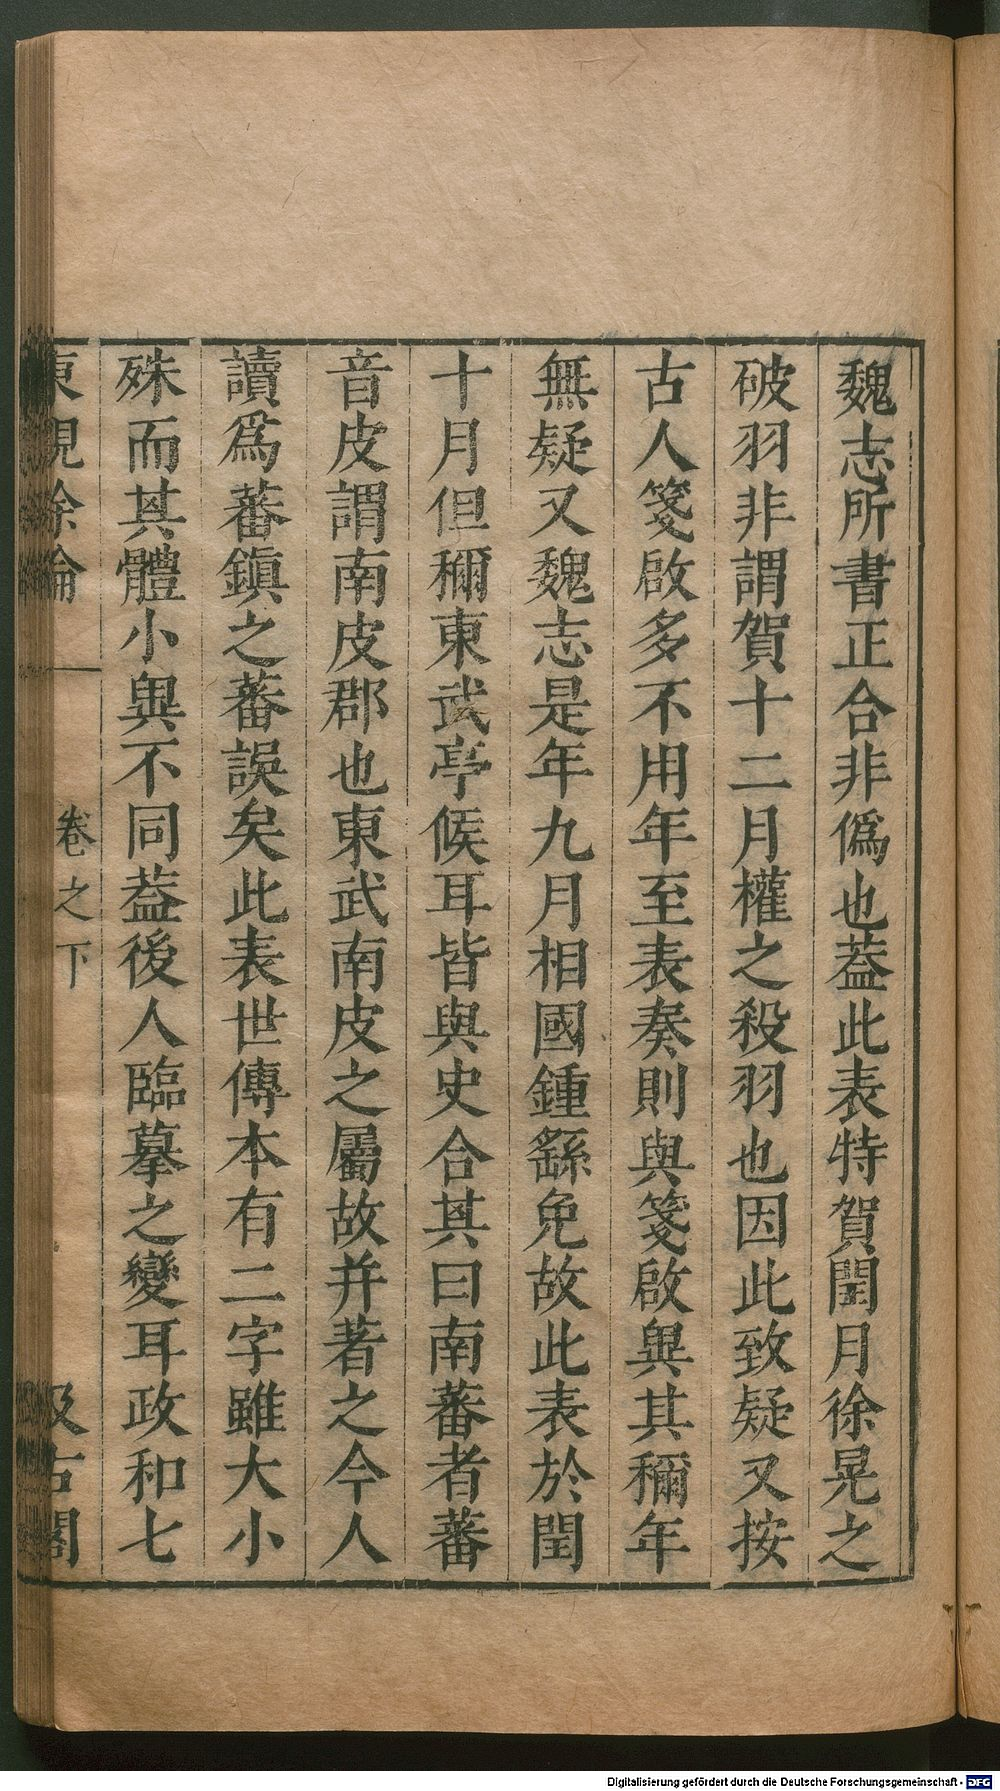 魏志所書正合非僞也葢此表特賀閏月徐晃之
破羽非謂賀十二月權之殺羽也因此致疑又按
古人箋啟多不用年至表奏則與箋啟異其稱年
無疑又魏志是年九月相國鍾繇免故此表於閏
十月但稱東武亭侯耳皆與史合其曰南蕃者蕃
音皮謂南皮郡也東武南皮之屬故并著之今人
讀爲蕃鎭之蕃誤矣此表世傳本有二字雖大小
殊而其體小異不同葢後人臨摹之變耳政和七
東觀餘論 卷之下 汲古閣
Digitalisierung gefördert durch die Deutsche Forschungsgemeinschaft - DFG